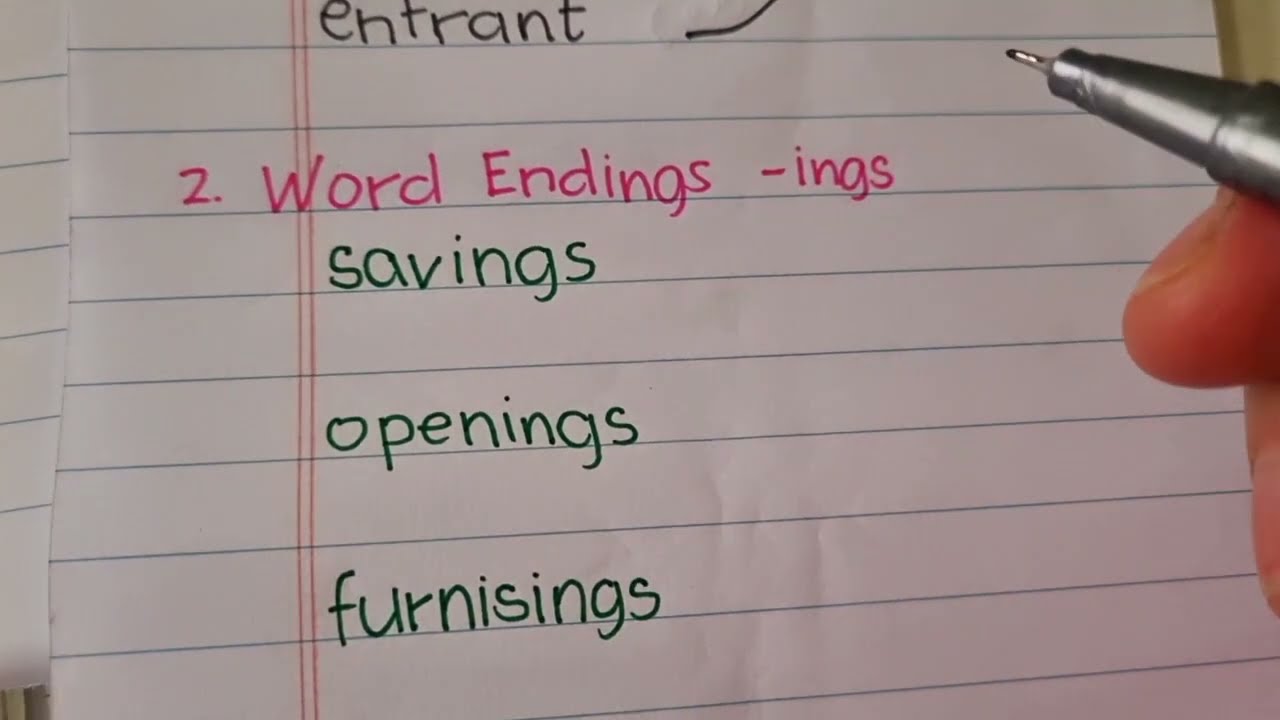 entrant
2. Word Endings -ings
savings
openings
furnisings